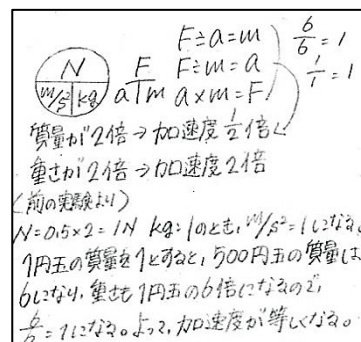 F÷a=m
N F F÷m=a 6/6=1
m/s² kg a m a×m=F 1/1=1
質量が2倍→加速度1/2倍
重さが2倍→加速度2倍
〈前の実験より〉
N=0.5×2=1N kg:1のとき, m/s²=1になる。
1円玉の質量を1とすると, 500円玉の質量は
6になり, 重さも1円玉の6倍になるので,
6/6=1になる。よって, 加速度が等しくなる。